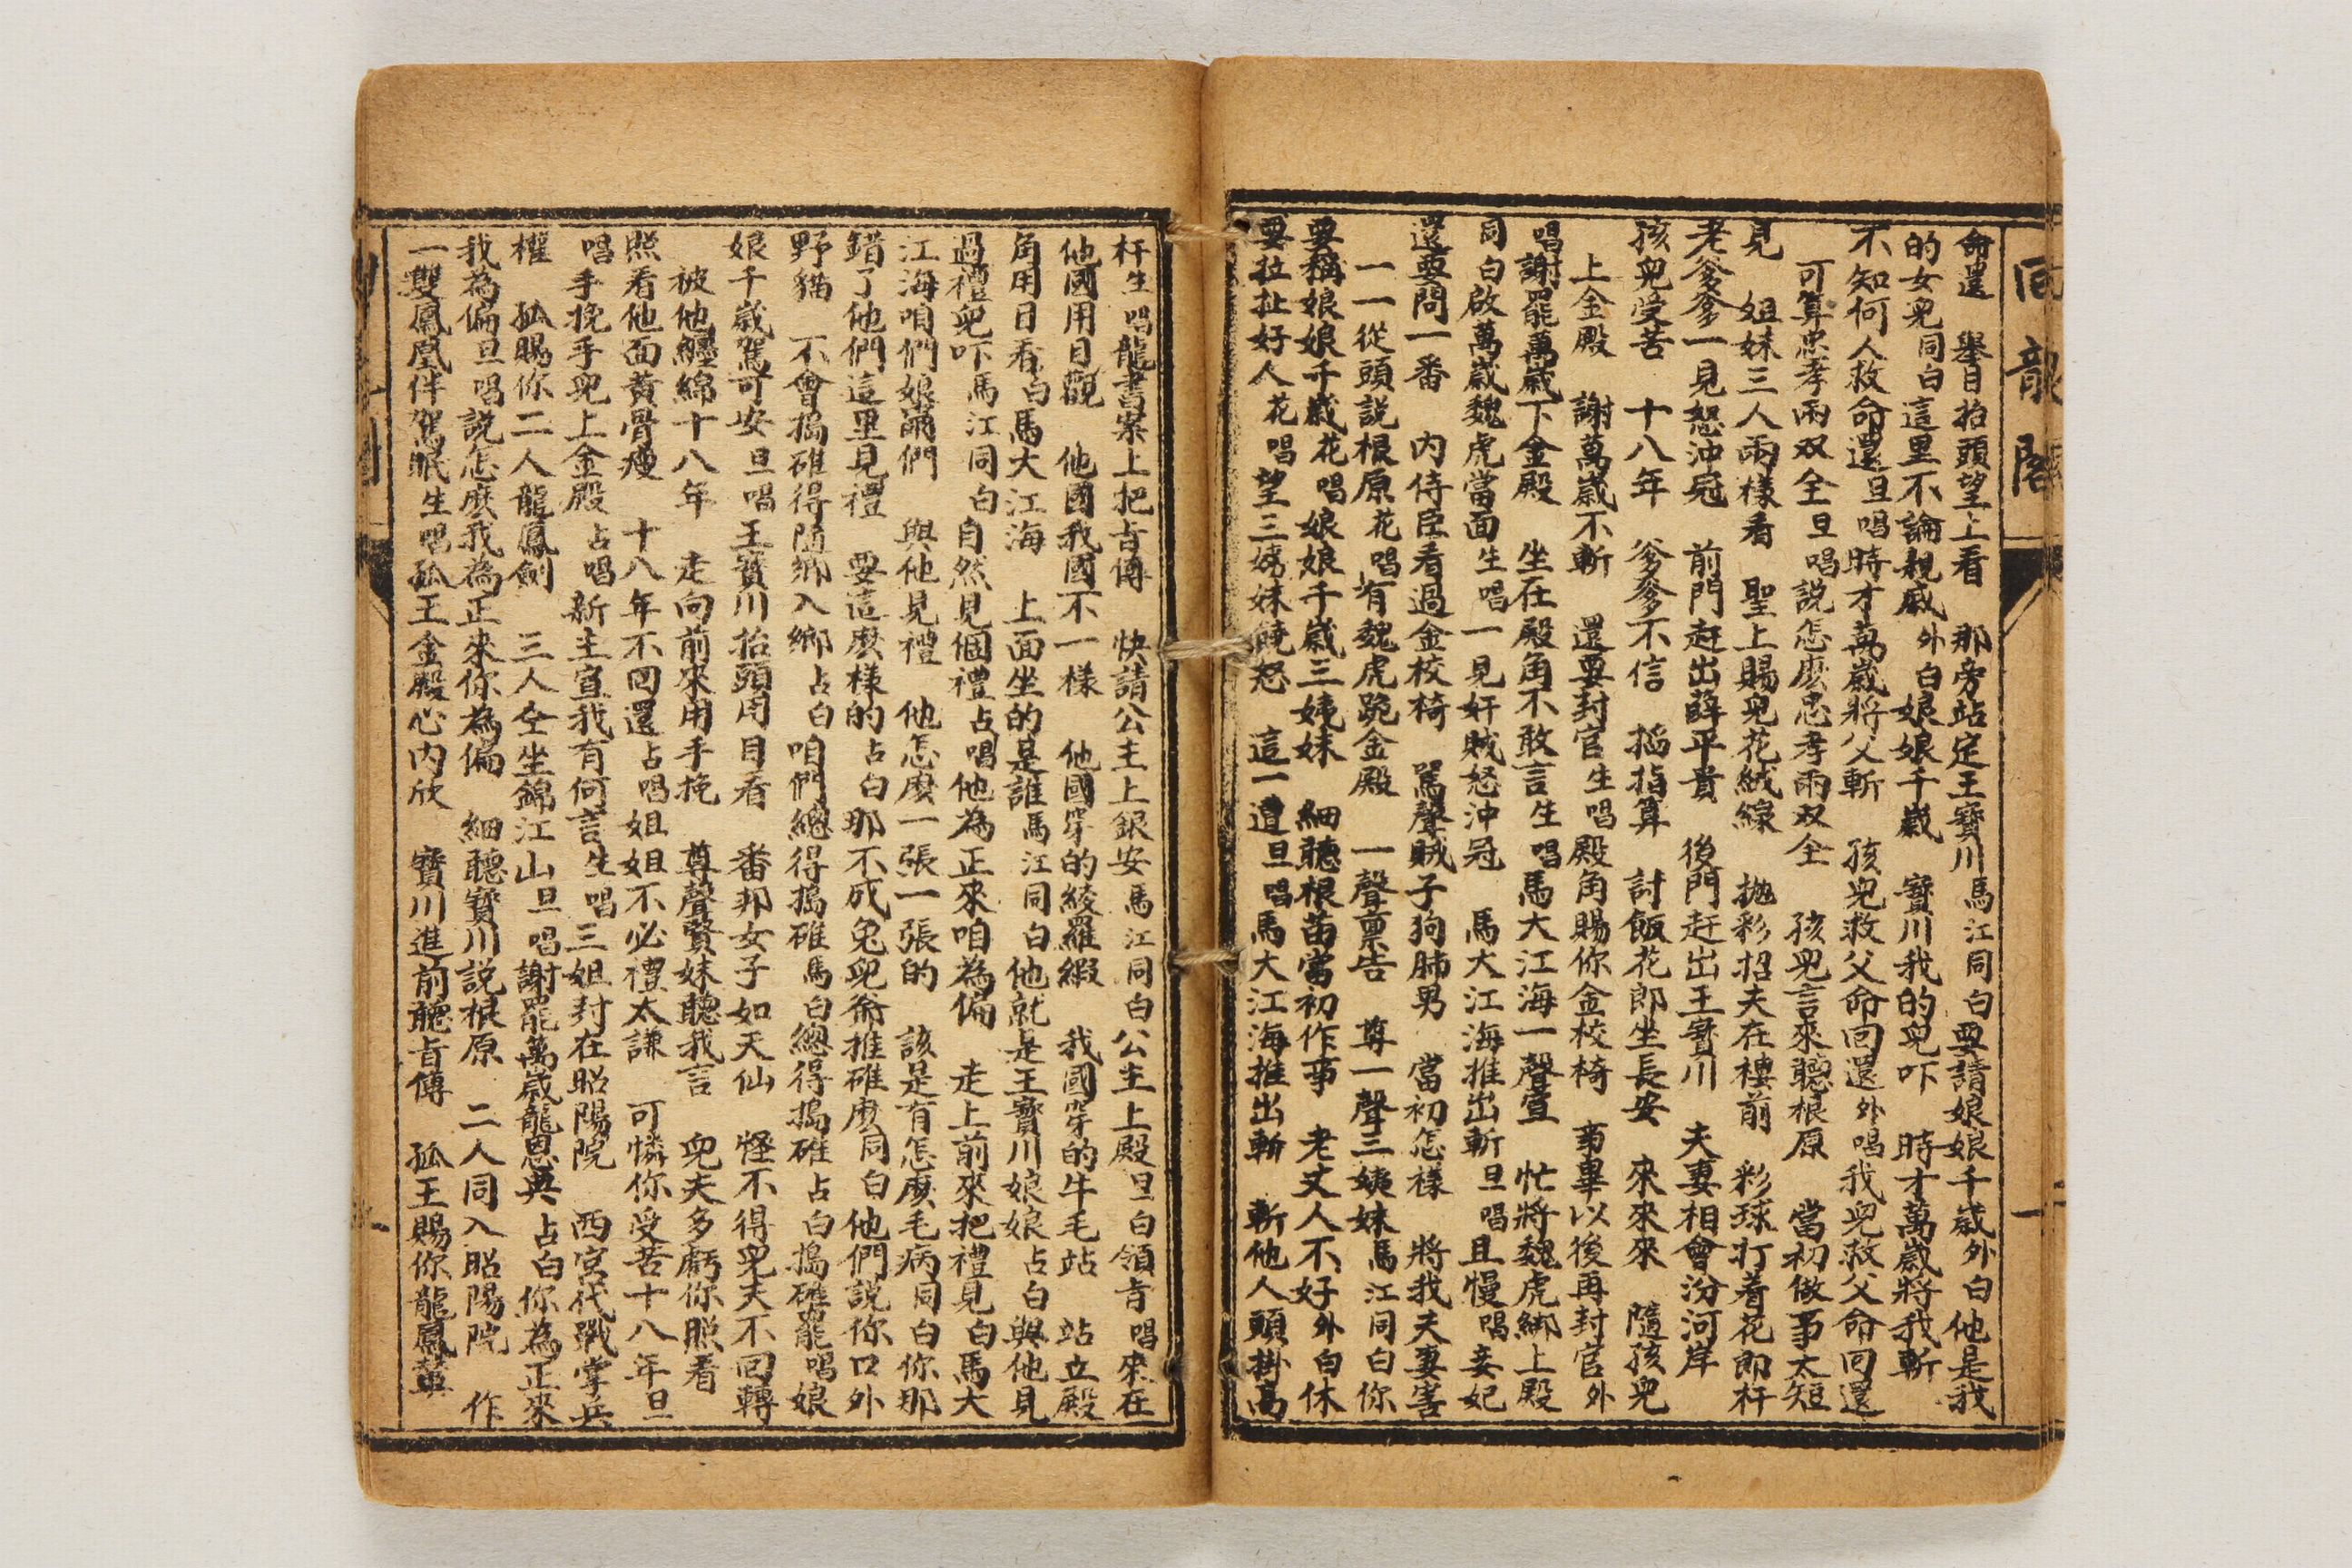 回龍閣
命還　舉目抬頭望上看　那旁站定王寶川馬江同白要請娘娘千歲外白他是我
的女兒同白這里不論親戚外白娘娘千歲　寶川我的兒吓　時才萬歲將我斬
不知何人救命還旦唱時才萬歲將父斬　孩兒救父命回還外唱我兒救父命回還
可算忠孝兩双全旦唱說怎麽忠孝兩双全　孩兒言來聽根原　當初做事太短
見　姐妹三人兩樣看　聖上賜兒花絨線　拋彩招夫在樓前　彩球打着花郎杆
老爹爹一見怒沖冠　前門赶出薛平貴　後門赶出王寶川　夫妻相會汾河岸
孩兒受苦　十八年　爹爹不信　搯指算　討飯花郎坐長安　來來來　隨孩兒
上金殿　謝萬歲不斬　還要封官生唱殿角賜你金校椅　事畢以後再封官外
唱謝罷萬歲下金殿　坐在殿角不敢言生唱馬大江海一聲宣　忙將魏虎綁上殿
同白啟萬歲魏虎當面生唱一見奸賊怒沖冠　馬大江海推出斬旦唱且慢唱妾妃
還要問一番　内侍臣看過金校椅　罵聲賊子狗肺男　當初怎樣　將我夫妻害
一一從頭説根原花唱有魏虎跪金殿　一聲禀告　尊一聲三姨妹馬江同白你
要稱娘娘千歲花唱娘娘千歲三姨妹　細聽根苗當初作事　老丈人不好外白休
要拉扯好人花唱望三姨妹饒恕　這一遭旦唱馬大江海推出斬　斬他人頭掛高
杆生唱龍書案上把旨傳　快請公主上銀安馬江同白公主上殿旦白領旨唱來在
他國用目觀　他國我國不一樣　他國穿的綾羅緞　我國穿的牛毛站　站立殿
角用目看白馬大江海　上面坐的是誰馬江同白他就是王寶川娘娘占白與他見
過禮兒吓馬江同白自然見個禮占唱他為正來咱為偏　走上前來把禮見白馬大
江海咱們娘爾們　與他見禮　他怎麽一張一張的　該是有怎麽毛病同白你那
錯了他們這里見禮　要這麽樣的占白那不成兔兒爺推碓麽同白他們説你口外
野貓　不會搗碓得隨鄉入鄉占白咱們總得搗碓馬白總得搗碓占白搗碓罷唱娘
娘千歲駕可安旦唱王寶川抬頭用目看　番邦女子如天仙　怪不得兒夫不回轉
被他纏綿十八年　走向前來用手挽　尊聲賢妹聽我言　兒夫多虧你照看
照看他面黄骨瘦　十八年不回還占唱姐姐不必禮太謙　可憐你受苦十八年旦
唱手挽手兒上金殿占唱新主宣我有何言生唱三姐封在昭陽院　西宮代戰掌兵
權　孤賜你二人龍鳳劍　三人仝坐錦江山旦唱謝罷萬歲龍恩典占白你為正來
我為偏旦唱説怎麽我為正來你為偏　細聽寶川説根原　二人同入昭陽院　作
一雙鳳凰伴駕眠生唱孤王金殿心内欣　寶川進前聽旨傳　孤王賜你龍鳳輦